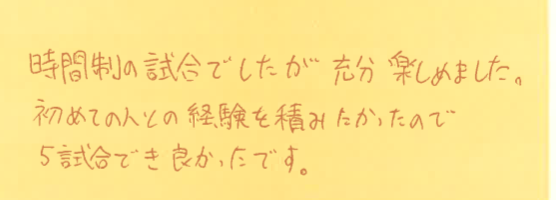 時間制の試合でしたが充分楽しめました。
初めての人との経験を積みたかったので
5試合でき良かったです。